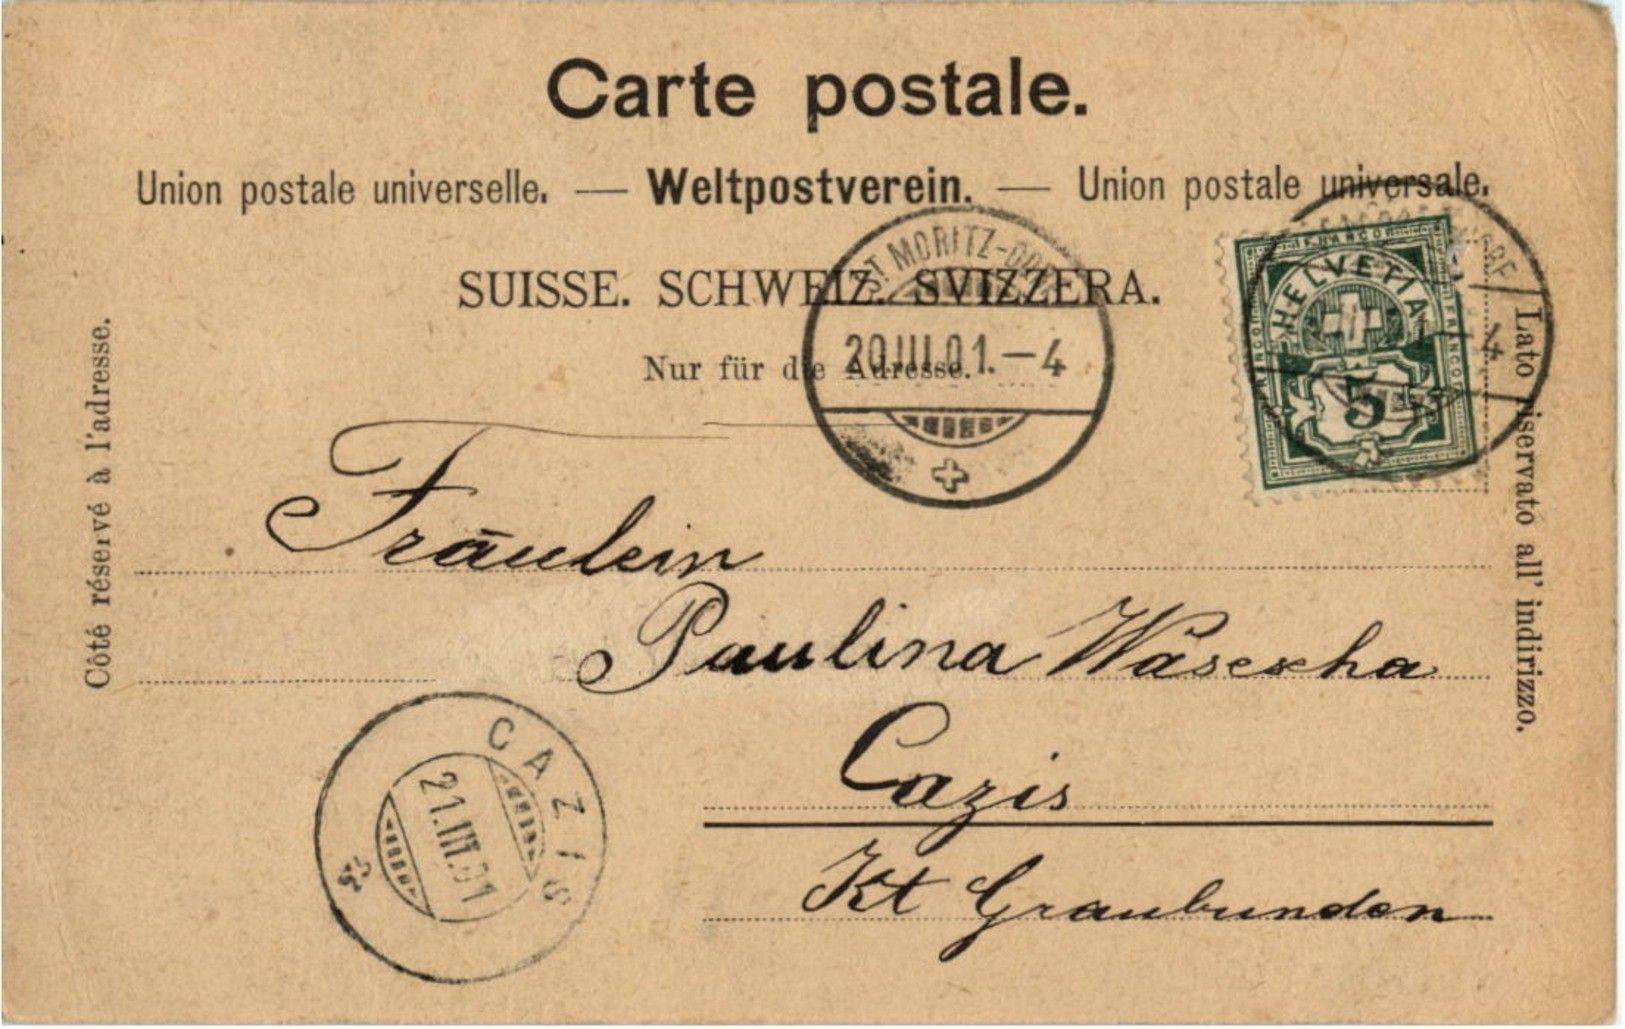 Carte postale.
Union postale universelle. — Weltpostverein. — Union postale universale.
SUISSE. SCHWEIZ. SVIZZERA.
Nur für die Adresse.
Côté réservé à l'adresse.
Lato riservato all' indirizzo.
ST MORITZ-DORF
20.III.01.–4
HELVETIA
FRANCO
5
Fräulein
Paulina
Cazis
Kt Graubunden
CAZIS
21.III.01